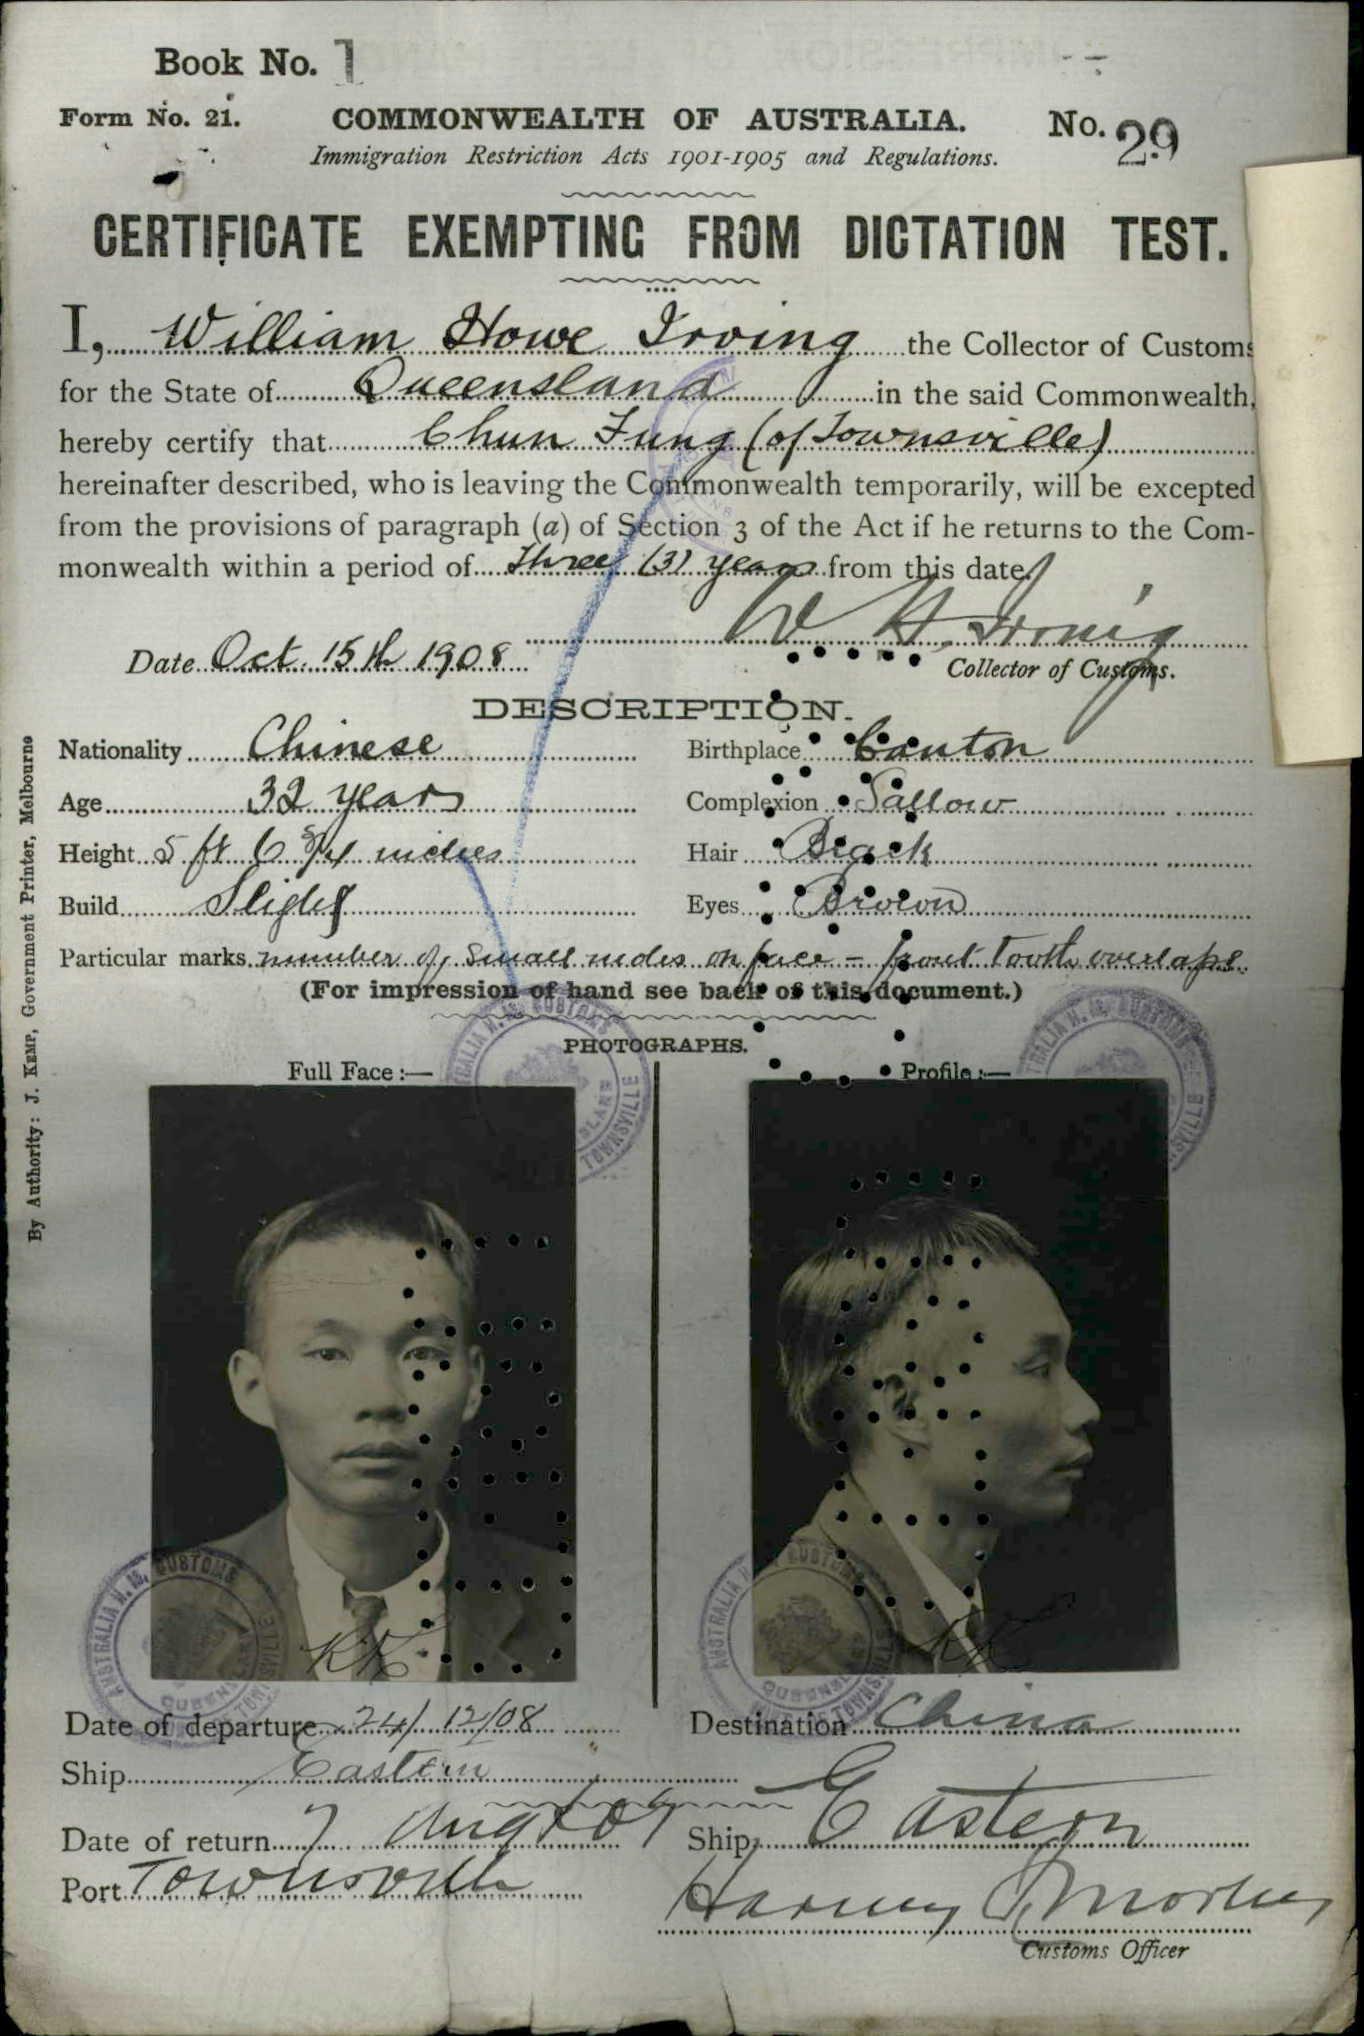 Book No. 1
Form No. 21. COMMONWEALTH OF AUSTRALIA. No. 29
Immigration Restriction Acts 1901-1905 and Regulations.
CERTIFICATE EXEMPTING FROM DICTATION TEST.
I, William Howe Irving the Collector of Customs
for the State of Queensland in the said Commonwealth,
hereby certify that Chun Fung (of Townsville)
hereinafter described, who is leaving the Commonwealth temporarily, will be excepted
from the provisions of paragraph (a) of Section 3 of the Act if he returns to the Com-
monwealth within a period of Three (3) years from this date.
W H. Irving
Date Oct. 15th 1908 Collector of Customs.
DESCRIPTION.
Nationality Chinese Birthplace Canton
Age 32 years Complexion Sallow
Height 5 ft 6 3/4 inches Hair Black
Build Slight Eyes Brown
Particular marks number of small moles on face - front tooth overlaps
(For impression of hand see back of this document.)
PHOTOGRAPHS.
Full Face :— Profile :—
AUSTRALIA H. M. CUSTOMS
QUEENSLAND
TOWNSVILLE
KK
KK
Date of departure 24/12/08 Destination China
Ship Eastern
Date of return 7 Aug 09 Ship Eastern
Port Townsville
Customs Officer
By Authority: J. KEMP, Government Printer, Melbourne